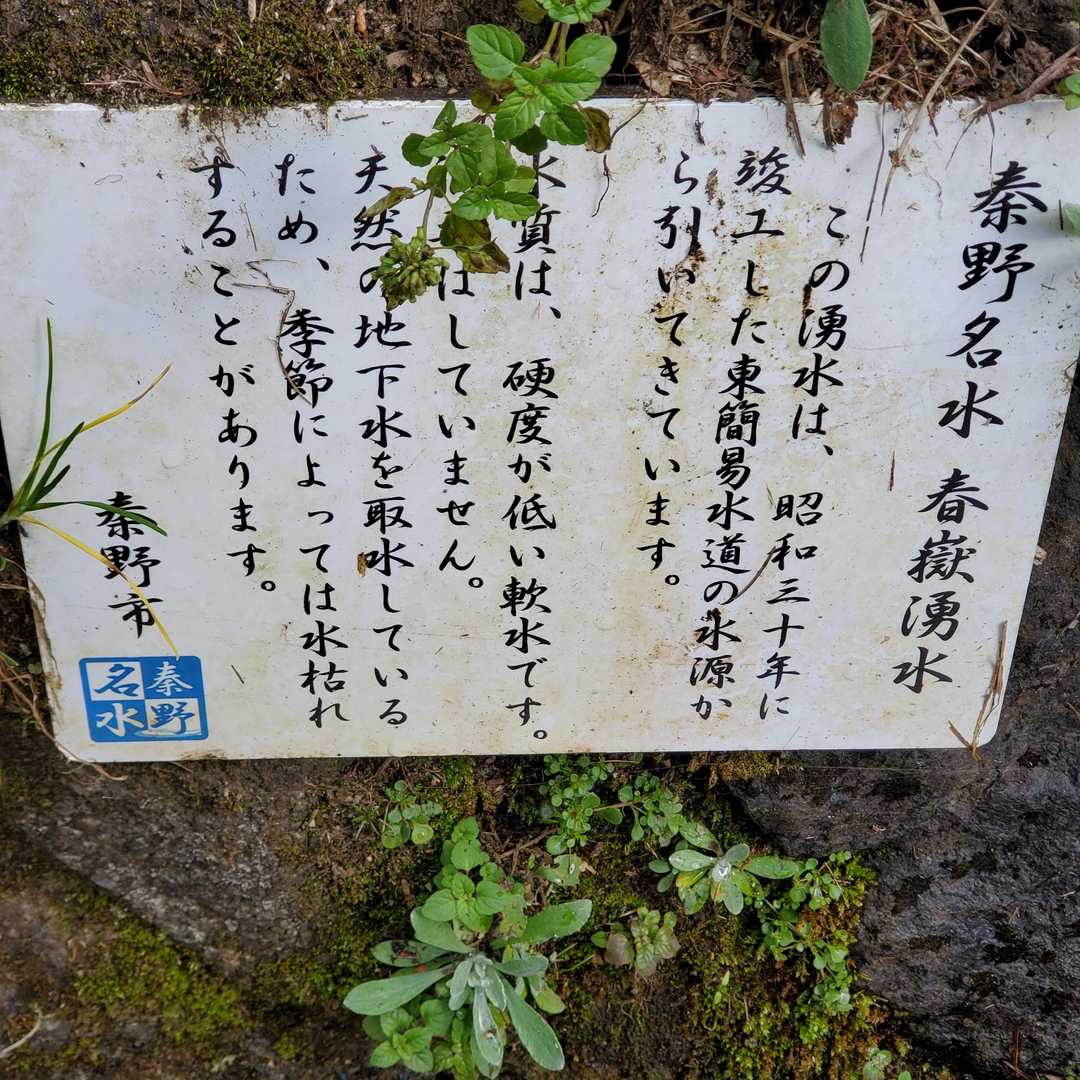 秦野名水 春嶽湧水
この湧水は、昭和三十年に
竣工した東簡易水道の水源か
ら引いてきています。
水質は、硬度が低い軟水です。
はしていません。
天然の地下水を取水している
ため、季節によっては水枯れ
することがあります。
秦野市
秦野
名水